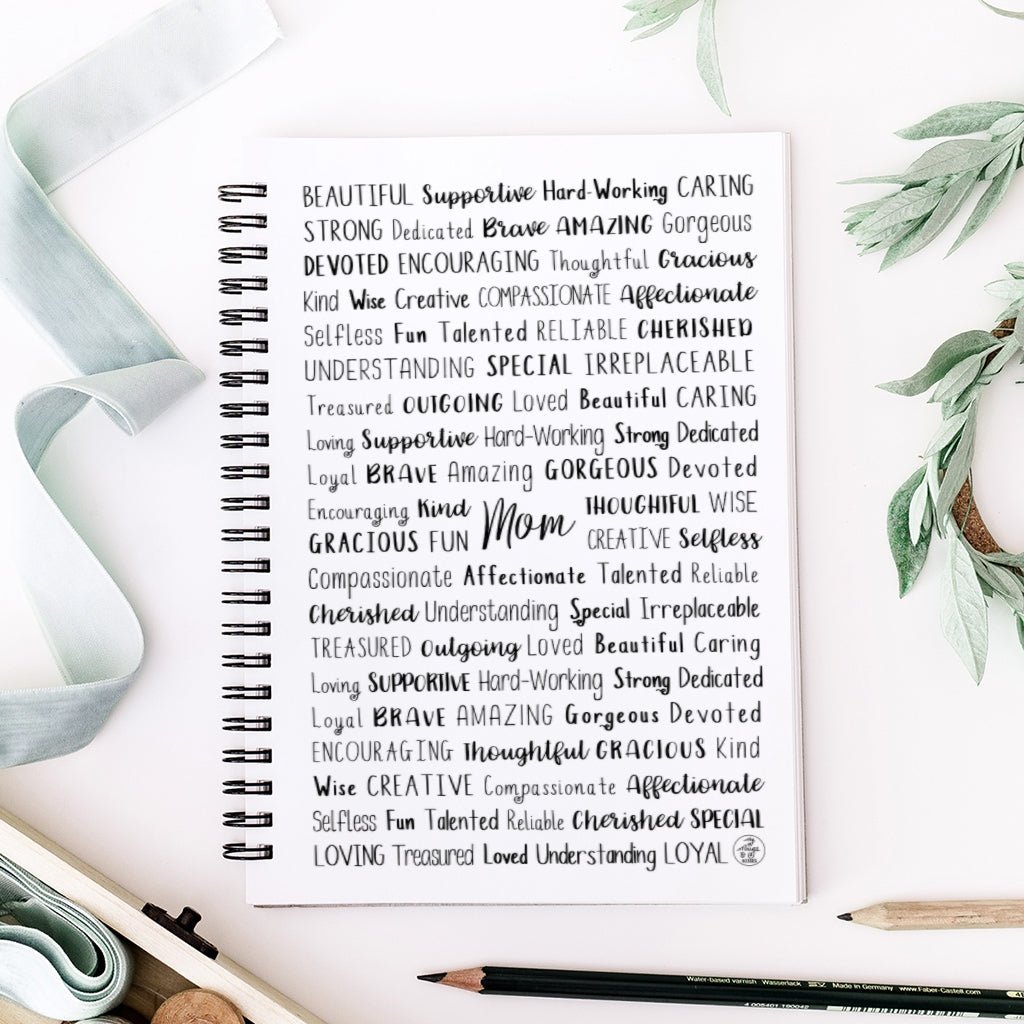 BEAUTIFUL Supportive Hard-Working CARING
STRONG Dedicated Brave AMAZING Gorgeous
DEVOTED ENCOURAGING Thoughtful Gracious
Kind Wise Creative COMPASSIONATE Affectionate
Selfless Fun Talented RELIABLE CHERISHED
UNDERSTANDING SPECIAL IRREPLACEABLE
Treasured OUTGOING Loved Beautiful CARING
Loving Supportive Hard-Working Strong Dedicated
Loyal BRAVE Amazing GORGEOUS Devoted
Encouraging Kind THOUGHTFUL WISE
Mom
GRACIOUS FUN CREATIVE Selfless
Compassionate Affectionate Talented Reliable
Cherished Understanding Special Irreplaceable
TREASURED Outgoing Loved Beautiful Caring
Loving SUPPORTIVE Hard-Working Strong Dedicated
Loyal BRAVE AMAZING Gorgeous Devoted
ENCOURAGING Thoughtful GRACIOUS Kind
Wise CREATIVE Compassionate Affectionate
Selfless Fun Talented Reliable Cherished SPECIAL
LOVING Treasured Loved Understanding LOYAL
Water-based varnish Wasserlack Made in Germany www.Faber-Castell.com
4 005401 190042